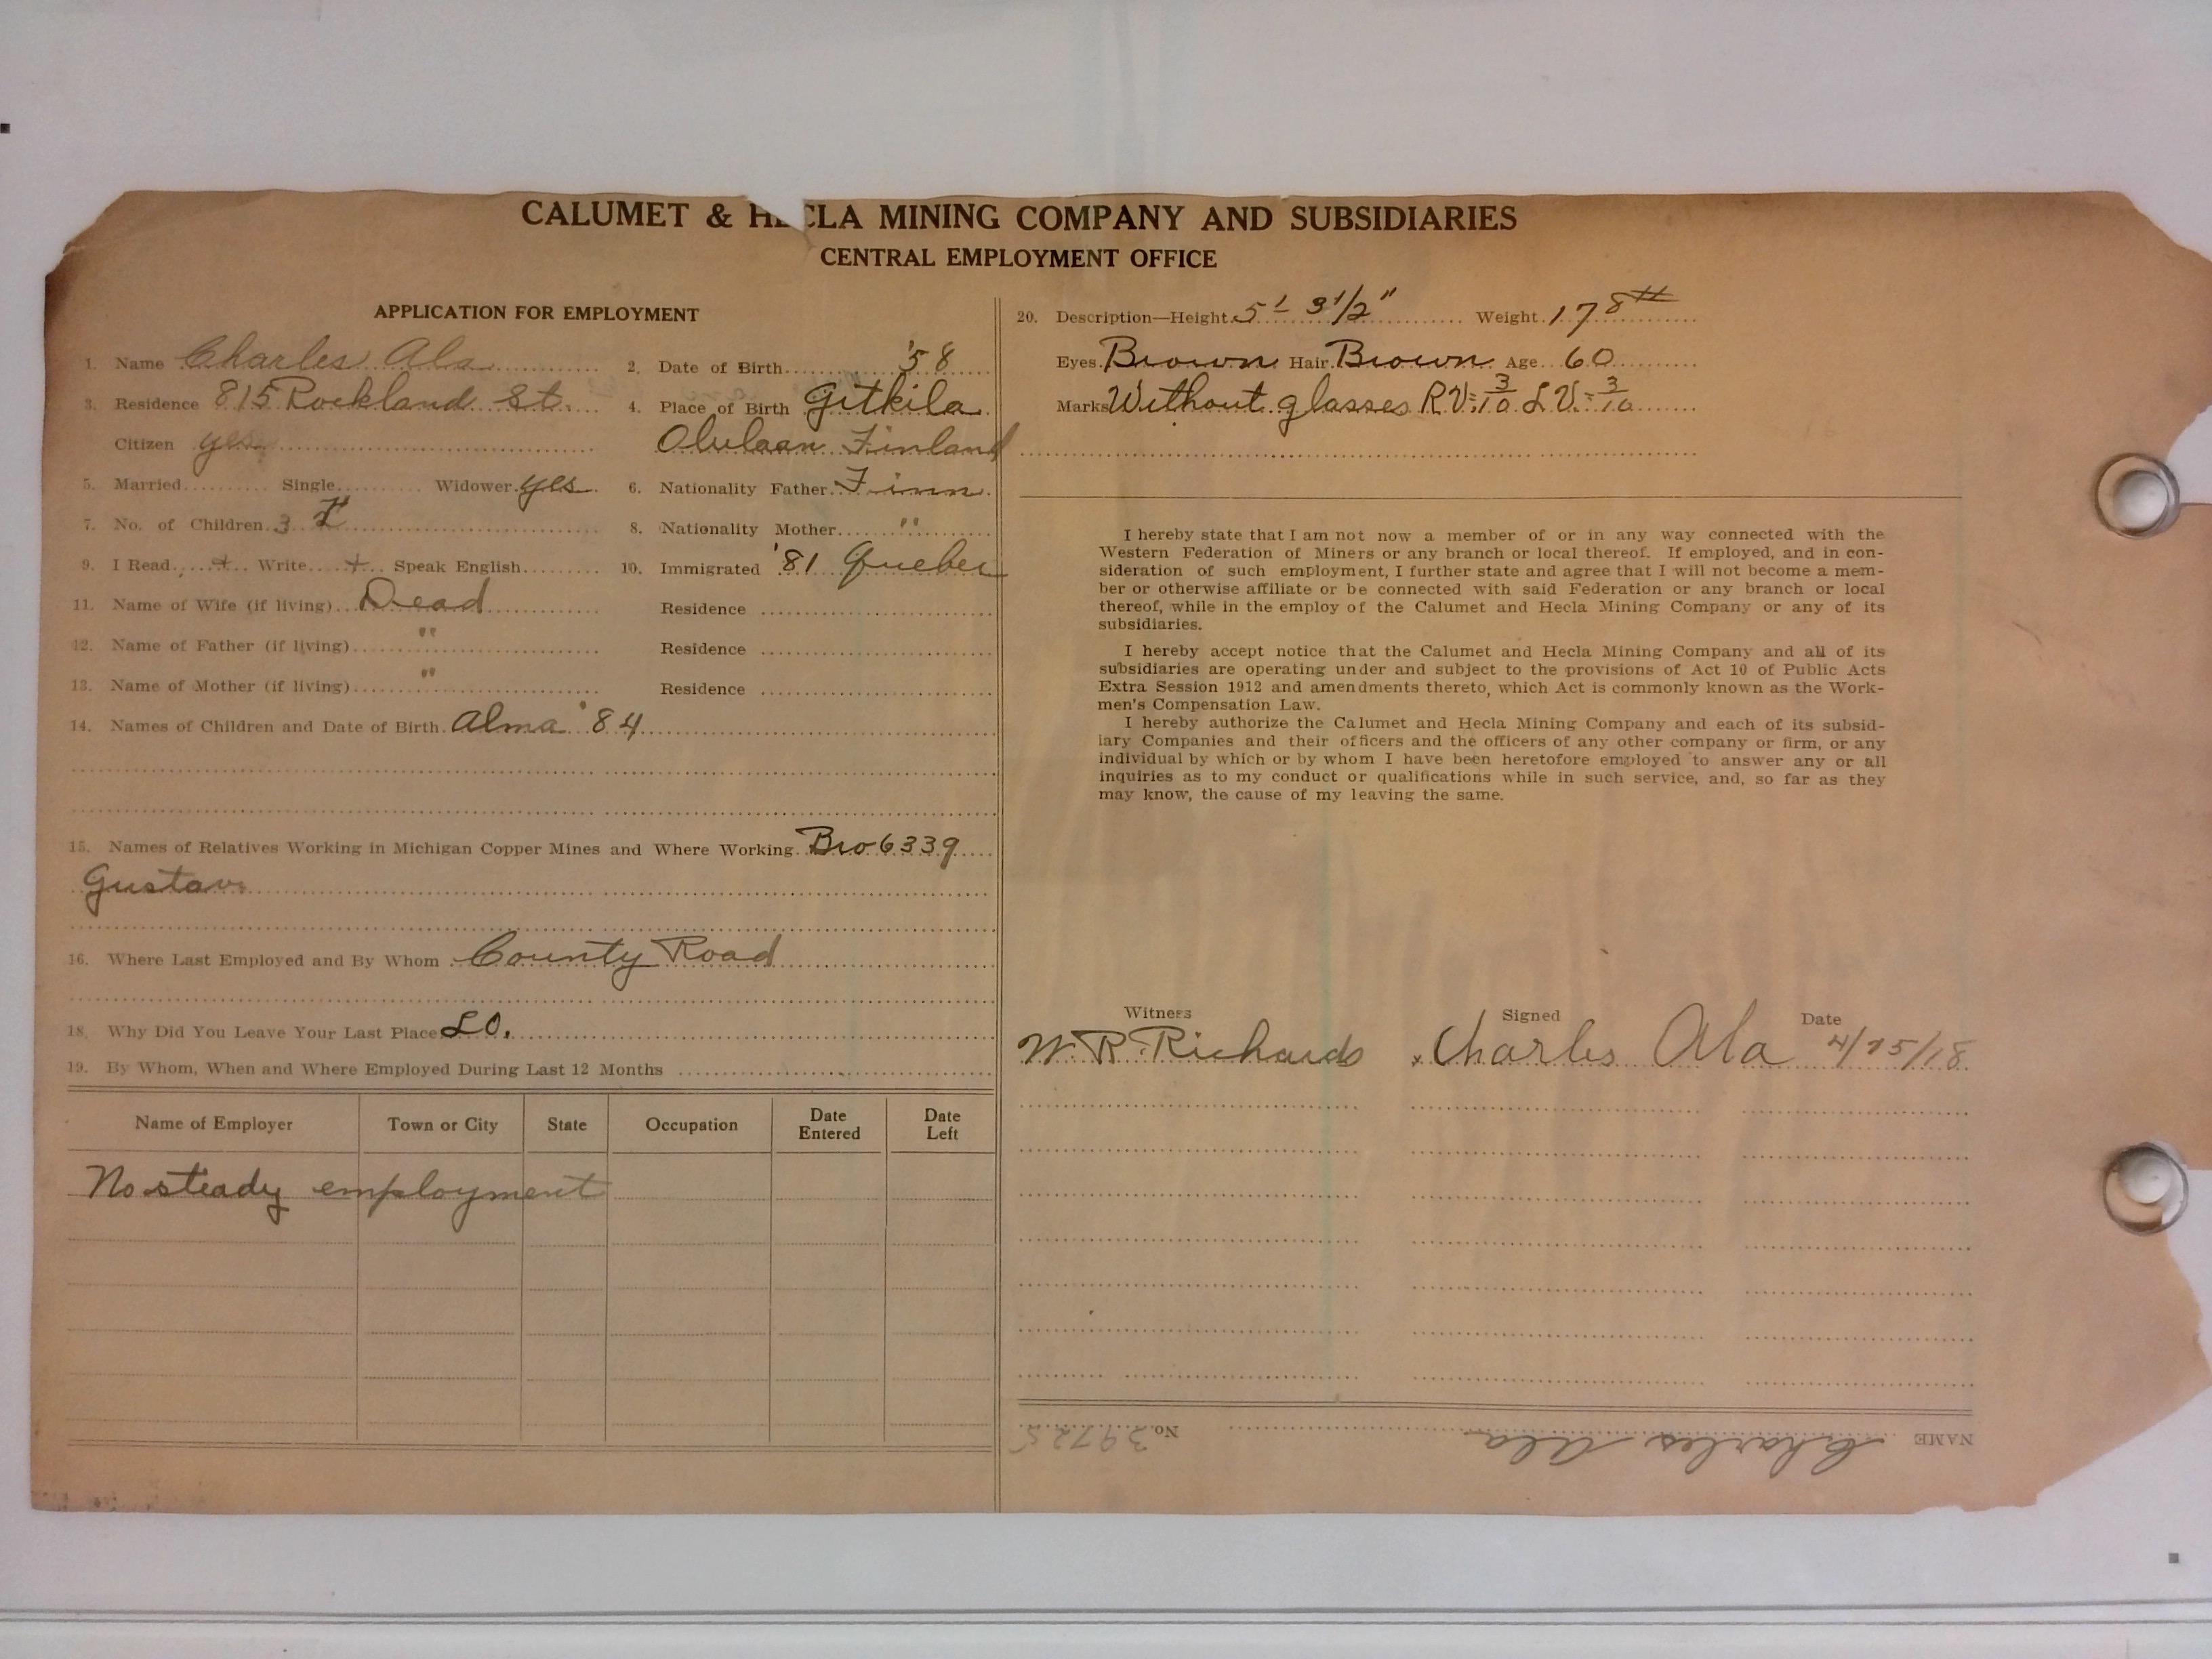 CALUMET & HECLA MINING COMPANY AND SUBSIDIARIES
CENTRAL EMPLOYMENT OFFICE
APPLICATION FOR EMPLOYMENT
1. Name Charles Ala 2. Date of Birth '58
3. Residence 815 Rockland St. 4. Place of Birth Gitkila
Citizen yes Olulaan Finland
5. Married Single Widower yes 6. Nationality Father Finn
7. No. of Children 3 8. Nationality Mother "
9. I Read + Write + Speak English 10. Immigrated '81 Quebec
11. Name of Wife (if living) Dead Residence
12. Name of Father (if living) " Residence
13. Name of Mother (if living) " Residence
14. Names of Children and Date of Birth. Alma '84
15. Names of Relatives Working in Michigan Copper Mines and Where Working. Bro 6339
Gustav
16. Where Last Employed and By Whom County Road
18. Why Did You Leave Your Last Place LO.
19. By Whom, When and Where Employed During Last 12 Months
Name of Employer Town or City State Occupation Date Entered Date Left
No steady employment
20. Description—Height 5' 3 1/2" Weight 178#
Eyes Brown Hair Brown Age 60
Marks Without glasses R.V. = 3/10 L.V. = 3/10
I hereby state that I am not now a member of or in any way connected with the
Western Federation of Miners or any branch or local thereof. If employed, and in con-
sideration of such employment, I further state and agree that I will not become a mem-
ber or otherwise affiliate or be connected with said Federation or any branch or local
thereof, while in the employ of the Calumet and Hecla Mining Company or any of its
subsidiaries.
I hereby accept notice that the Calumet and Hecla Mining Company and all of its
subsidiaries are operating under and subject to the provisions of Act 10 of Public Acts
Extra Session 1912 and amendments thereto, which Act is commonly known as the Work-
men's Compensation Law.
I hereby authorize the Calumet and Hecla Mining Company and each of its subsid-
iary Companies and their officers and the officers of any other company or firm, or any
individual by which or by whom I have been heretofore employed to answer any or all
inquiries as to my conduct or qualifications while in such service, and, so far as they
may know, the cause of my leaving the same.
Witness Signed Date
W. R. Richards x Charles Ala 4/25/18
NAME Charles Ala No. 39725